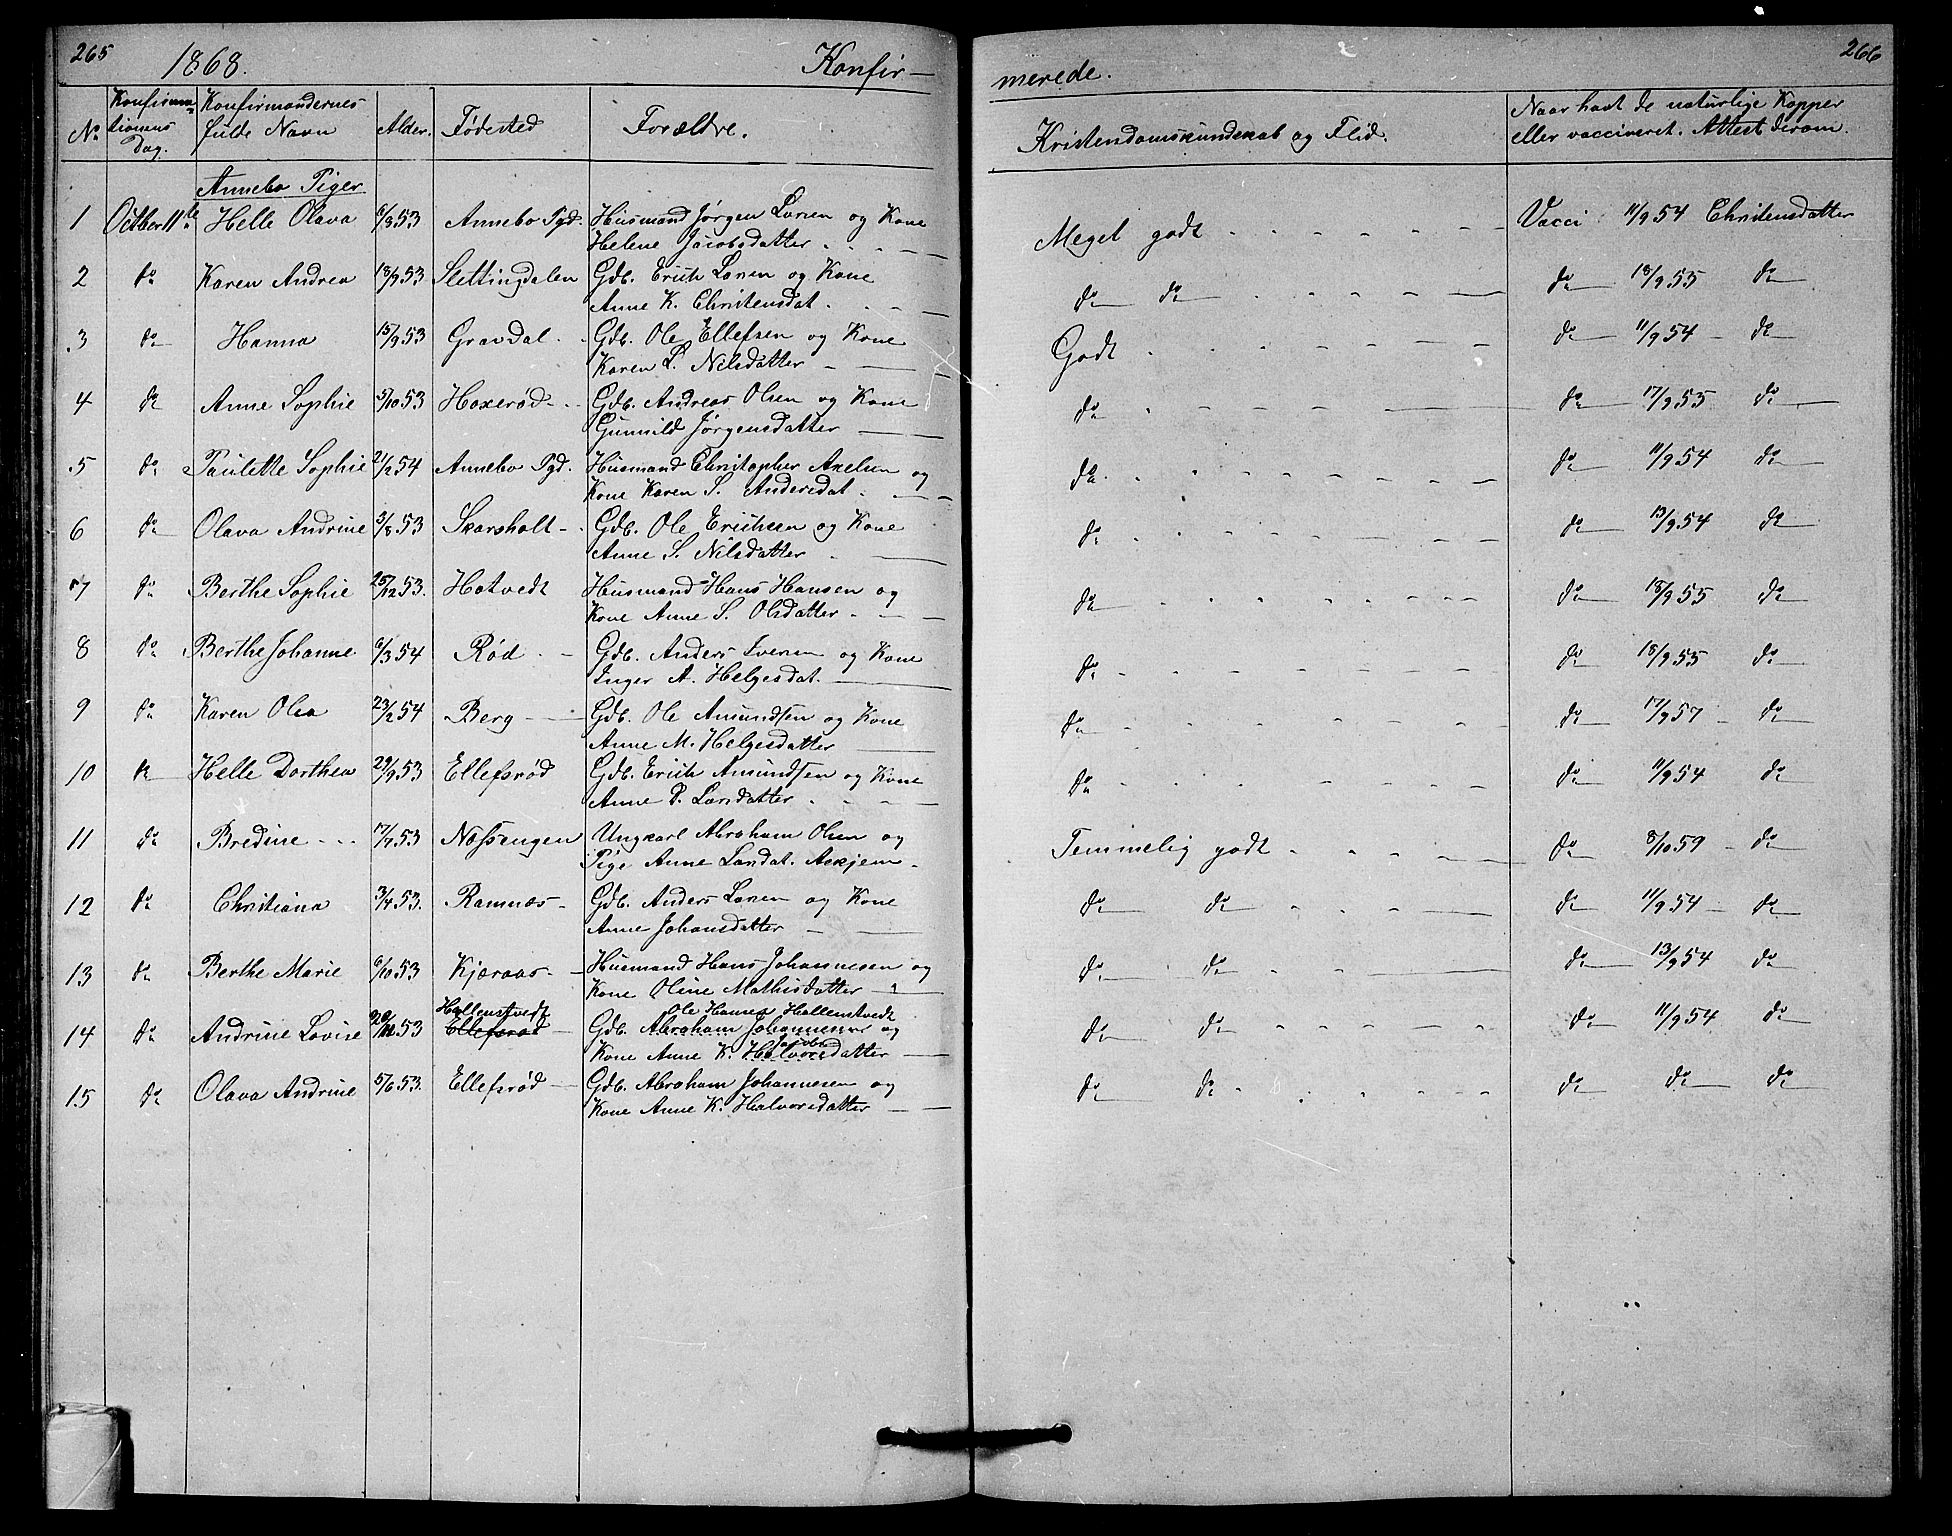 265 1868. Konfir- merede. 266
No Konfirmationens Dag. Konfirmandernes fulde Navn Alder. Fødested Forældre. Kristendomskundskab og Flid. Naar havt de naturlige Kopper eller vaccineret. Attest derom.
Annebo Piger
1 Octber 11te Helle Olava 6/8 53 Annebo Pgd. Husmand Jørgen Larsen og Kone Meget godt Vacci 11/9 54 Christensdatter
Helene Jacobsdatter
2 do Karen Andrea 13/9 53 Slettingdalen Gdb. Erich Larsen og Kone do do do 18/9 55 do
Anne K. Christensdat.
3 do Hanna 15/9 53 Gravdal Gdb. Ole Ellefsen og Kone Godt do 11/9 54 do
Karen L. Nilsdatter
4 do Anne Sophie 5/10 53 Hoxerød Gdb. Andreas Olsen og Kone do do 17/9 55 do
Gunnild Jørgensdatter
5 do Paulette Sophie 21/2 54 Annebo Pgd. Husmand Christopher Axelsen og do do 11/9 54 do
Kone Karen S. Andersdat.
6 do Olava Andrine 3/8 53 Skarsholt Gdb. Ole Erichsen og Kone do do 13/9 54 do
Anne S. Nilsdatter
7 do Berthe Sophie 25/12 53. Hotvedt Husmand Hans Hansen og do do 18/9 55 do
Kone Anne S. Olsdatter
8 do Berthe Johanne 6/3 54 Rød Gdb. Anders Iversen og Kone do do 18/9 55 do
Inger A. Helgesdat.
9 do Karen Olea 23/2 54 Berg Gdb. Ole Amundsen og Kone do do 17/9 57 do
Anne M. Helgesdatter
10 do Helle Dorthea 29/9 53 Ellefsrød Gdb. Erich Amundsen og Kone do do 11/9 54 do
Anne P. Larsdatter
11 do Bredine 17/7 53 Nossengen Ungkarl Abraham Olsen og Temmelig godt do 8/10 59 do
Pige Anne Larsdat. Askjem
12 do Christiana 3/4 53. Ramnæs Gdb. Anders Larsen og Kone do do do 11/9 54 do
Anne Johansdatter
13 do Berthe Marie 6/10 53 Kjæraas Husmand Hans Johannesen og do do do 13/9 54 do
Kone Oline Mathisdatter
Hallenstvedt Ole Hansen Hallenstvedt
14 do Andrine Lovise 20/12 53 Ellefsrød Gdb. Abraham Johannesen og do do do 11/9 54 do
Kone Anne K. Halvorsdatter
15 do Olava Andrine 5/6 53. Ellefsrød Gdb. Abraham Johannesen og do do do do do
Kone Anne K. Halvorsdatter